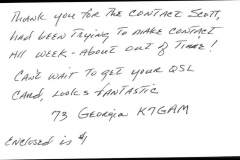 THANK YOU FOR THE CONTACT SCOTT,
HAD BEEN TRYING TO MAKE CONTACT
All WEEK - ABOUT OUT OF TIME!
CAN'T WAIT TO GET YOUR QSL
CARD, LOOKS FANTASTIC
73 GEORGIA K7GAM
ENCLOSED IS $1